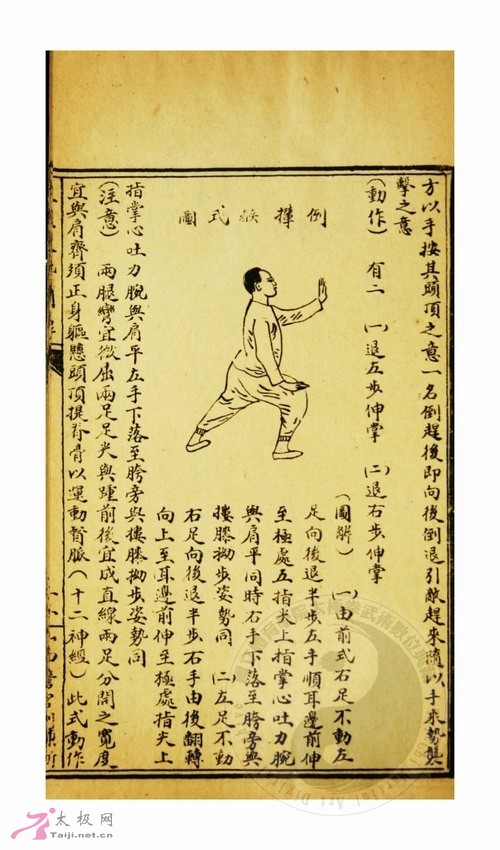 方以手按其頭頂之意一名倒趕後即向後倒退引敵趕來隨以手來勢襲
擊之意
（動作） 有二 一）退左步伸掌 二）退右步伸掌
倒攆猴式圖
（圖解） 一）由前式右足不動左
足向後退半步左手順耳邊前伸
至極處五指尖上指掌心吐力腕
與肩平同時右手下落至胯旁與
摟膝拗步姿勢同 二）左足不動
右足向後退半步右手由後翻轉
向上至耳邊前伸至極處指尖上
指掌心吐力腕與肩平左手下落至胯旁與摟膝拗步姿勢同
（注意） 兩腿彎宜微屈兩足足尖與踵前後宜成直線兩足分開之寬度
宜與肩齊須正身軀懸頭頂提脊骨以運動督脈（十二神經）此式動作
太极网
Taiji.net.cn